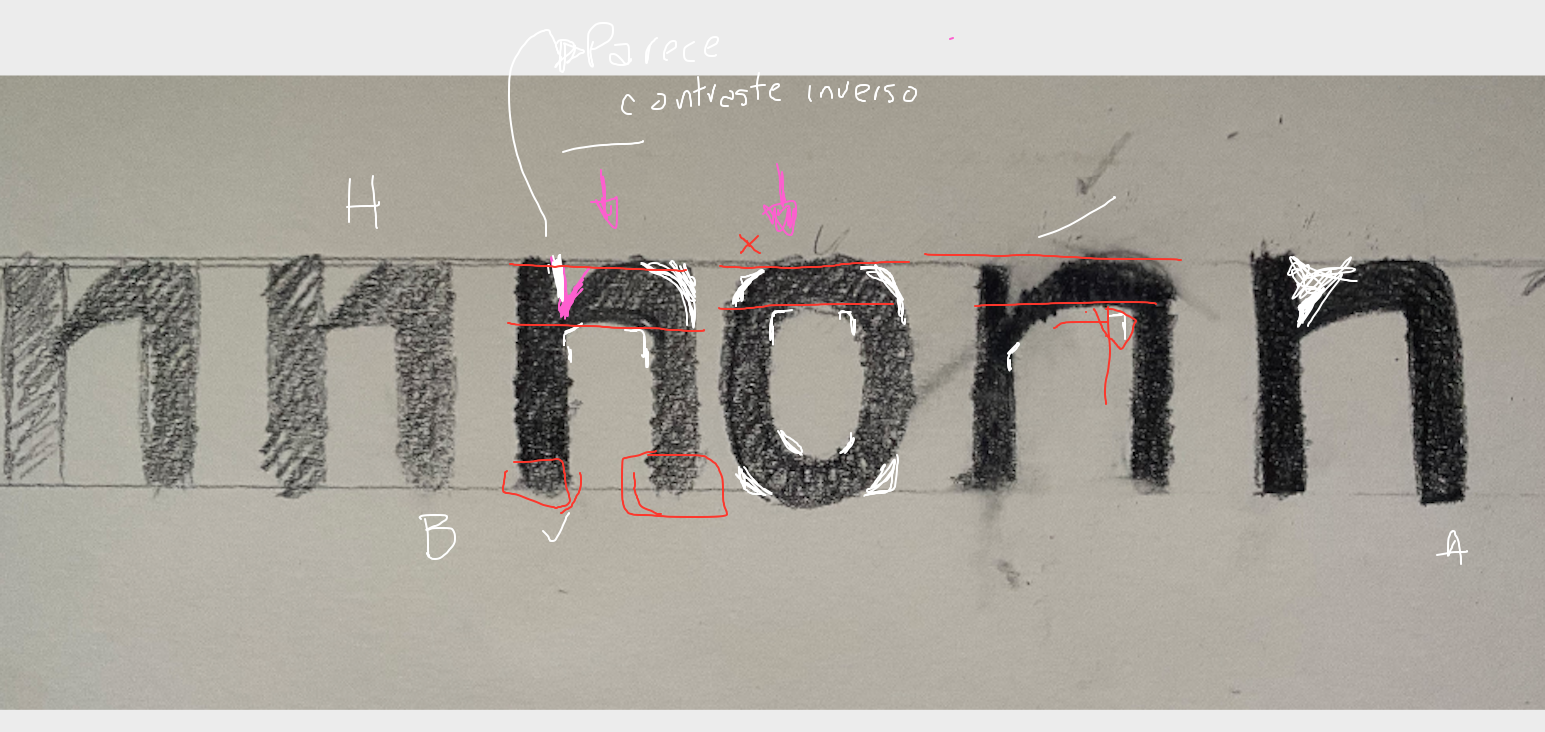 Parece
contraste inverso
H
x
n n n o n n
B
A